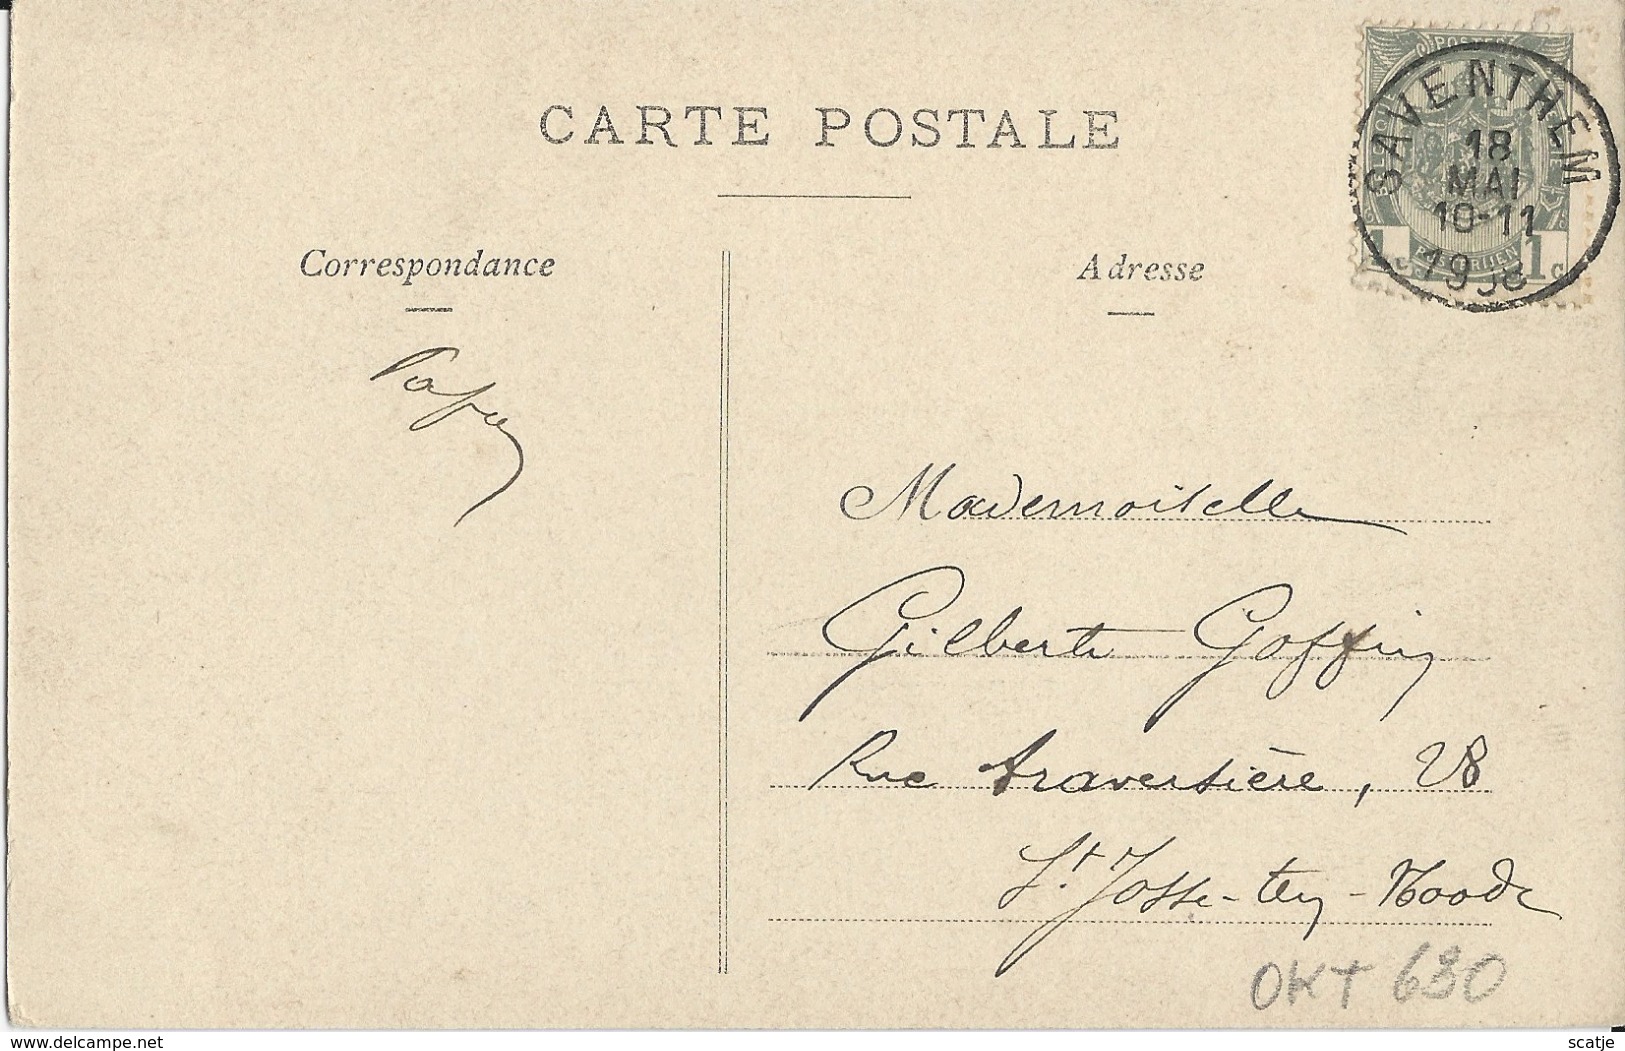 CARTE POSTALE
Correspondance
Adresse
POSTES
SAVENTHEM
18
MAI
10-11
1908
1c
Papa
Mademoiselle
Gilberte Goffin
Rue traversière, 28
St. Josse-ten-Noode
OKT 630
www.delcampe.net
scatje